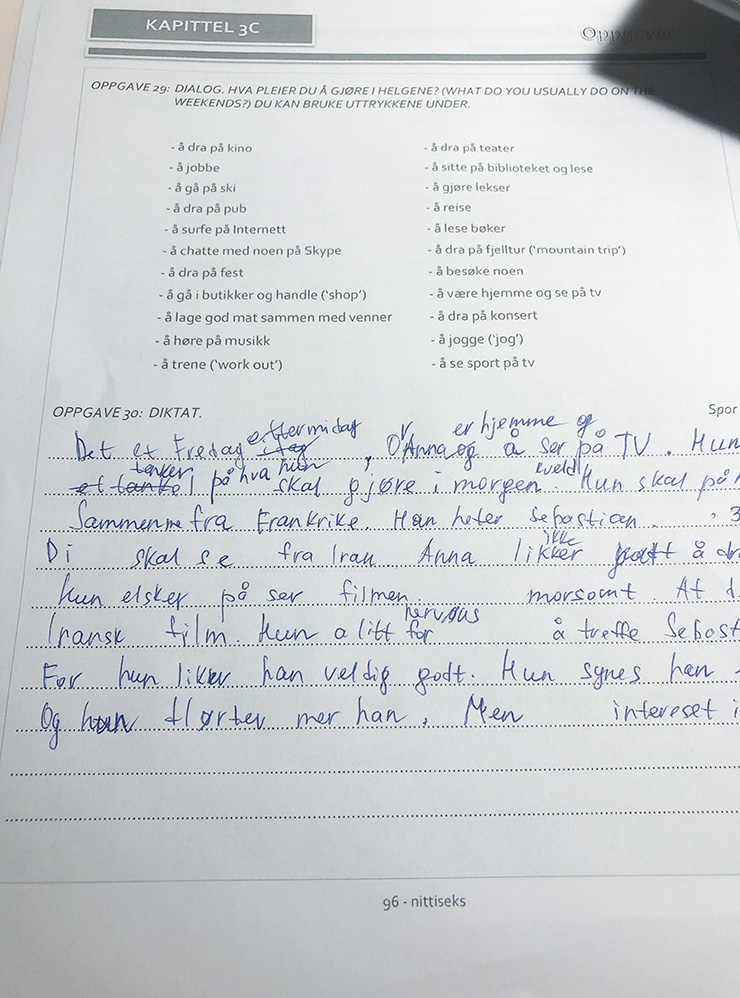 KAPITTEL 3C
Oppgaver
OPPGAVE 29: DIALOG. HVA PLEIER DU Å GJØRE I HELGENE? (WHAT DO YOU USUALLY DO ON THE
WEEKENDS?) DU KAN BRUKE UTTRYKKENE UNDER.
- å dra på kino
- å jobbe
- å gå på ski
- å dra på pub
- å surfe på Internett
- å chatte med noen på Skype
- å dra på fest
- å gå i butikker og handle ('shop')
- å lage god mat sammen med venner
- å høre på musikk
- å trene ('work out')
- å dra på teater
- å sitte på biblioteket og lese
- å gjøre lekser
- å reise
- å lese bøker
- å dra på fjelltur ('mountain trip')
- å besøke noen
- å være hjemme og se på tv
- å dra på konsert
- å jogge ('jog')
- å se sport på tv
OPPGAVE 30: DIKTAT.
Spor
eftermidag er hjemme og
Det et Fredag , Anna og å ser på TV. Hun
tenker på hva hun skal gjøre i morgen kveld. Hun skal på
Sammen me fra Frankrike. Han heter Sebastian.
Di skal se fra Iran Anna likker ikke godt å
Hun elsker på ser filmen. morsomt. At
Iransk film. Hun a litt nervøus for å treffe Sebast
For hun liker han veldig godt. Hun synes han
Og hun flørter mer han, Men intereset i
96 - nittiseks